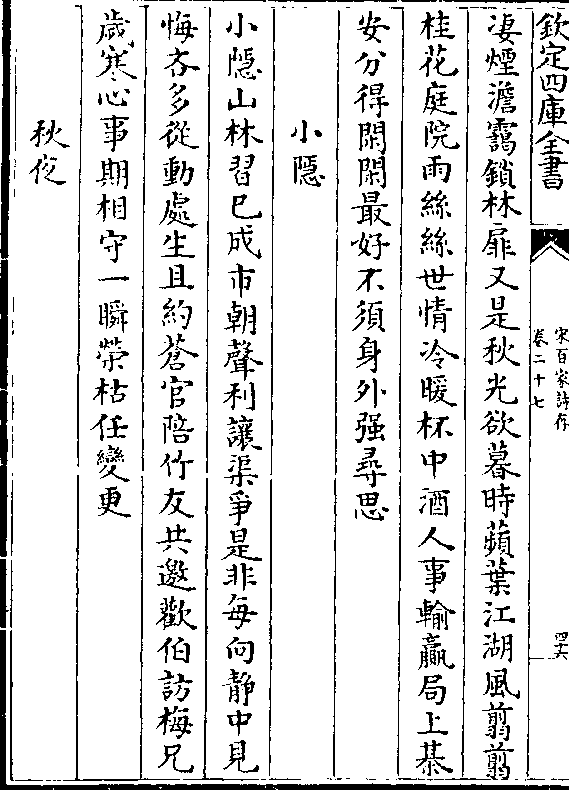 欽定四庫全書
宋百家詩存
卷二十七
四六
凄煙澹靄鎖林扉又是秋光欲暮時蘋葉江湖風翦翦
桂花庭院雨絲絲世情冷暖杯中酒人事輸贏局上棊
安分得閑閑最好不須身外强尋思
小隱
小隱山林習已成市朝聲利讓渠爭是非每向静中見
悔吝多從動處生且約蒼官陪竹友共邀歡伯訪梅兄
歲寒心事期相守一瞬榮枯任變更
秋夜